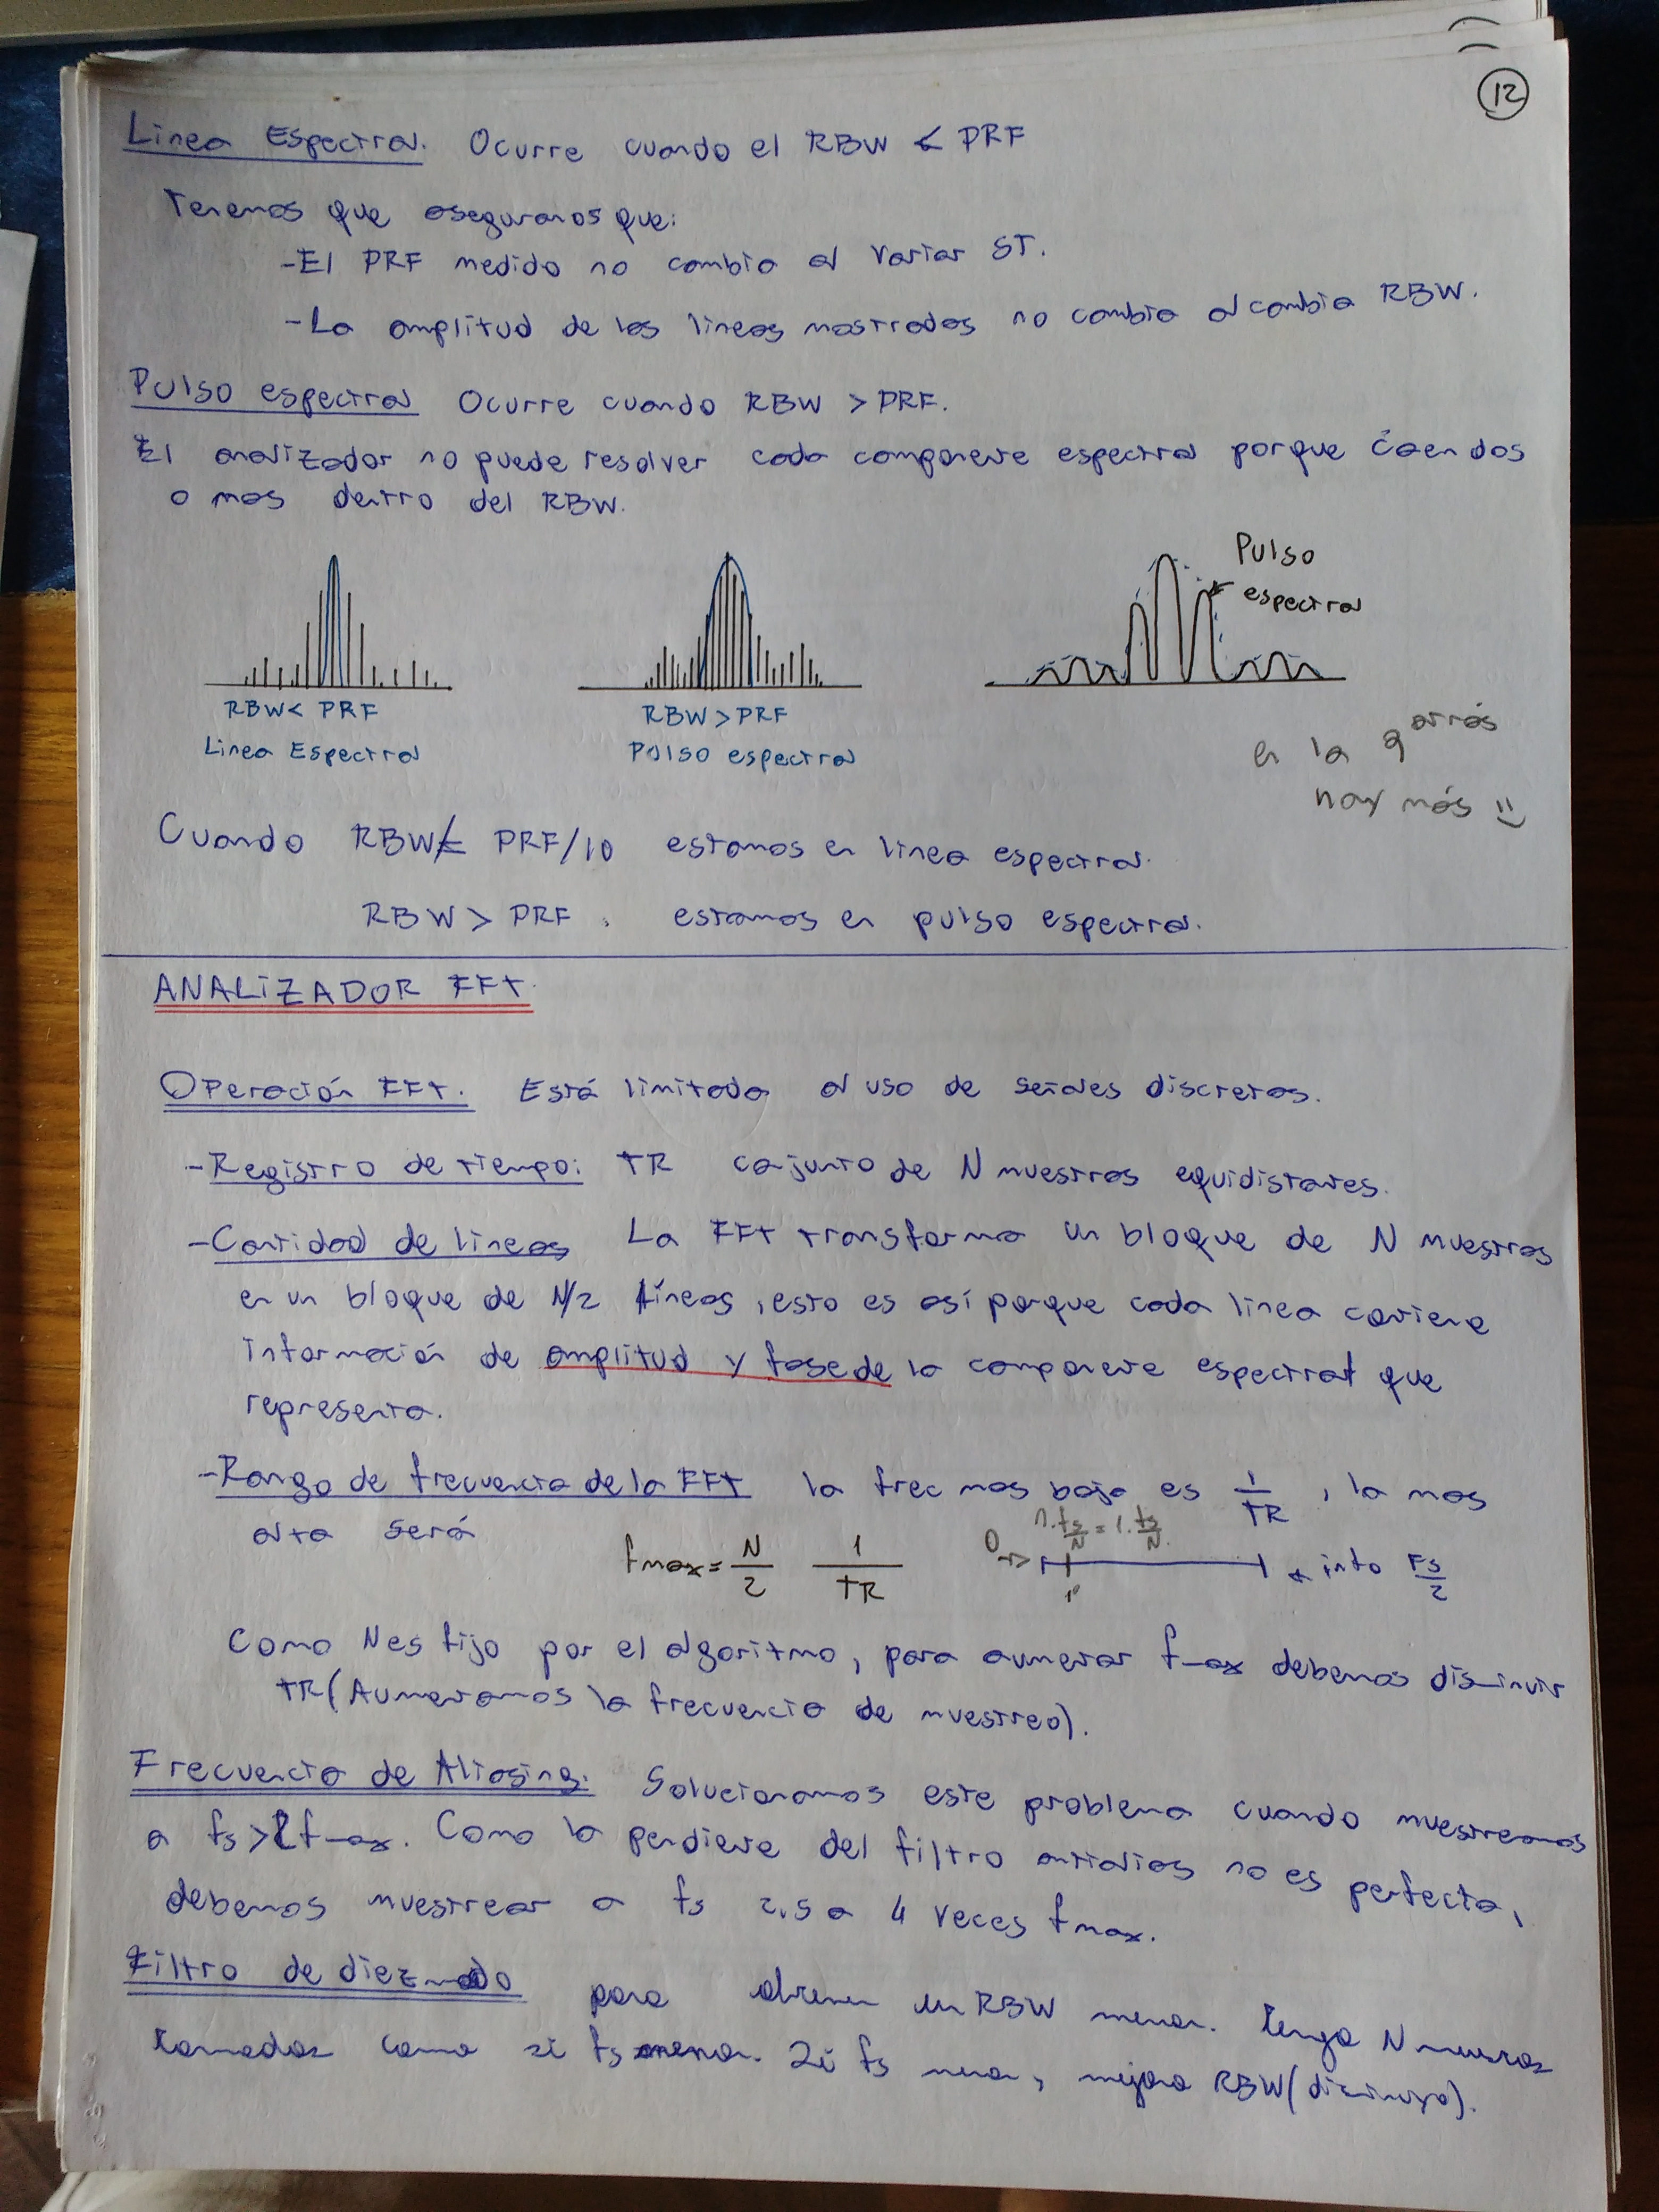 12
Linea Espectral. Ocurre cuando el RBW < PRF
Tenemos que asegurarnos que:
-El PRF medido no cambia al variar ST.
-La amplitud de las lineas mostradas no cambia al cambia RBW.
Pulso espectral Ocurre cuando RBW > PRF.
El analizador no puede resolver cada componente espectral porque caen dos
o mas dentro del RBW.
Pulso
espectral
RBW< PRF
Linea Espectral
RBW > PRF
Pulso espectral
en la 9 atrás
hay más
Cuando RBW ≤ PRF/10 estamos en linea espectral.
RBW > PRF. estamos en pulso espectral.
ANALIZADOR FFT.
Operación FFT. Está limitada al uso de señales discretas.
-Registro de tiempo: TR conjunto de N muestras equidistantes.
-Cantidad de lineas La FFT transforma un bloque de N muestras
en un bloque de N/2 líneas, esto es así porque cada linea contiene
información de amplitud y fase de la componente espectral que
representa.
-Rango de frecuencia de la FFT la frec mas baja es 1/TR, la mas
alta será
fmax = N/2 1/TR
n.fs/N = 1.fs/N
0
1º
into Fs/2
Como N es fijo por el algoritmo, para aumentar fmax debemos disminuir
TR (Aumentamos la frecuencia de muestreo).
Frecuencia de Aliasing. Solucionamos este problema cuando muestreamos
a fs>2fmax. Como la pendiente del filtro antialias no es perfecta,
debemos muestrear a fs 2,5 a 4 veces fmax.
Filtro de diezmado para obtener un RBW menor. Tengo N muestras
tomadas como si fs menor. Si fs menor, mejora RBW (disminuye).